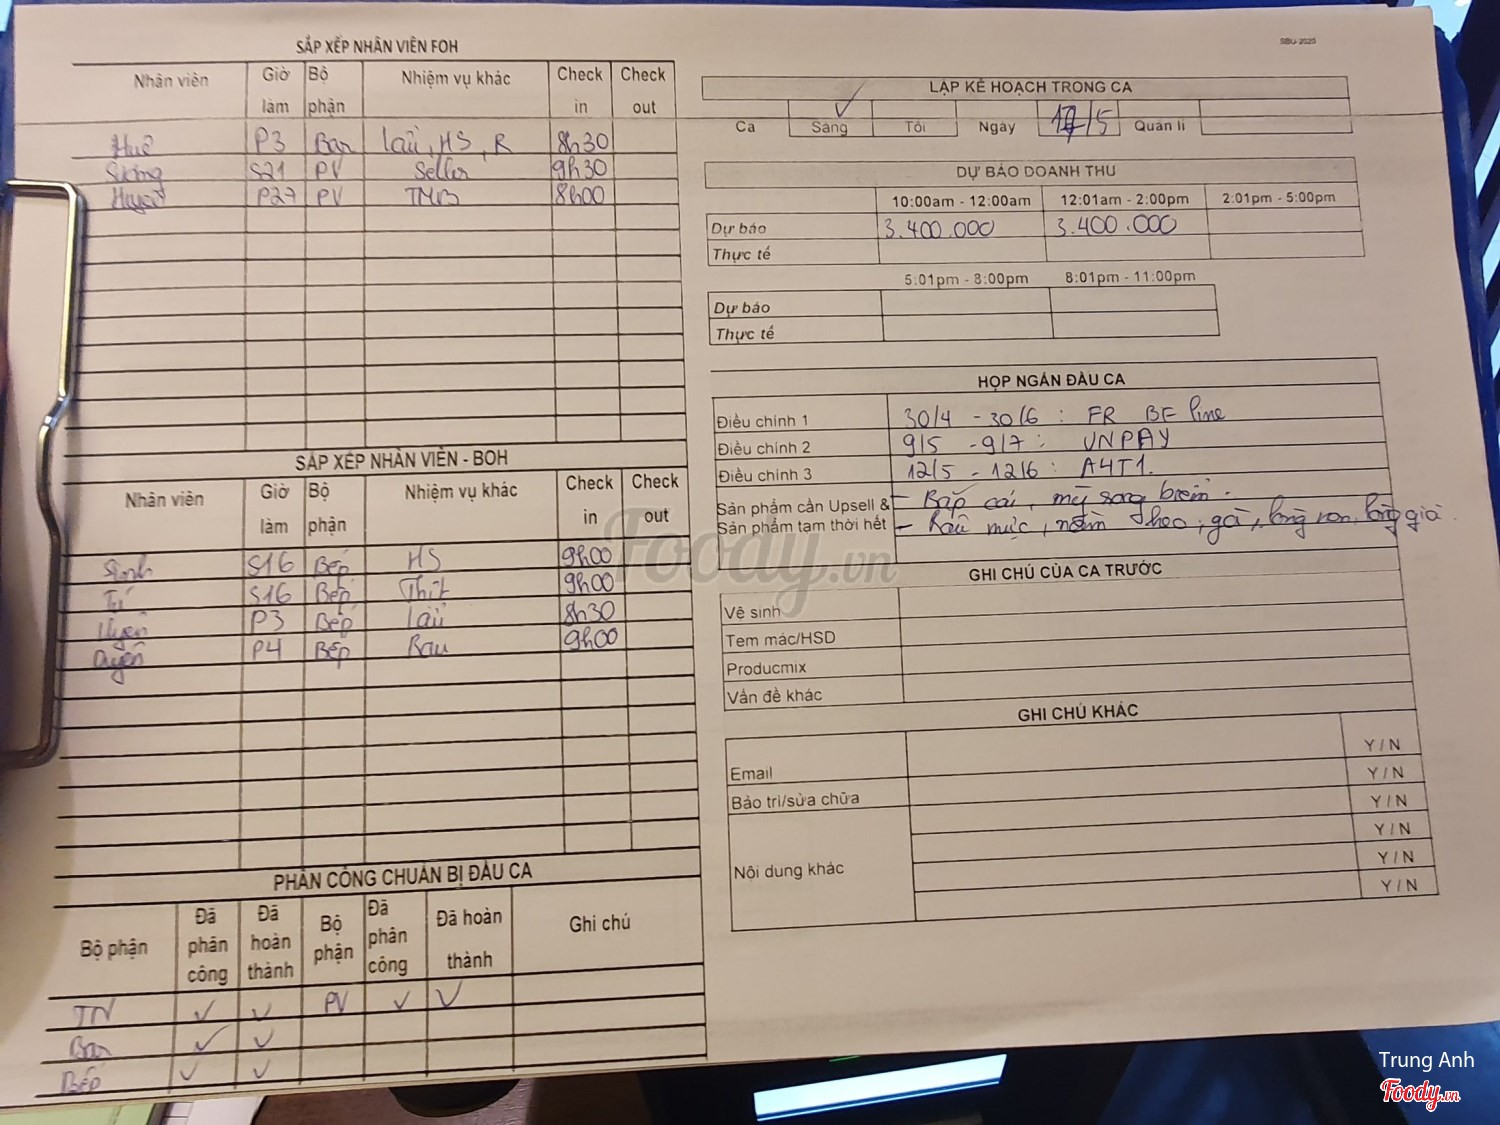 SBU-2025
SẮP XẾP NHÂN VIÊN FOH
Nhân viên Giờ làm Bộ phận Nhiệm vụ khác Check in Check out
Huê P3 Bar Lẩu, HS, R 8h30
Sương S21 PV Seller 9h30
P27 PV 8h00
SẮP XẾP NHÂN VIÊN - BOH
Nhân viên Giờ làm Bộ phận Nhiệm vụ khác Check in Check out
Sinh S16 Bếp HS 9h00
Tú S16 Bếp Thịt 9h00
P3 Bếp Lẩu 8h30
Duyên P4 Bếp Rau 9h00
PHÂN CÔNG CHUẨN BỊ ĐẦU CA
Bộ phận Đã phân công Đã hoàn thành Bộ phận Đã phân công Đã hoàn thành Ghi chú
TN ✓ ✓ PV ✓ ✓
Bar ✓ ✓
Bếp ✓ ✓
LẬP KẾ HOẠCH TRONG CA
Ca Sáng ✓ Tối Ngày 17/5 Quản lí
DỰ BÁO DOANH THU
10:00am - 12:00am 12:01am - 2:00pm 2:01pm - 5:00pm
Dự báo 3.400.000 3.400.000
Thực tế
5:01pm - 8:00pm 8:01pm - 11:00pm
Dự báo
Thực tế
HỌP NGẮN ĐẦU CA
Điều chỉnh 1 30/4 - 30/6 : FR BF line
Điều chỉnh 2 9/5 - 9/7 : VNPAY
Điều chỉnh 3 12/5 - 12/6 : A4T1.
Sản phẩm cần Upsell & - Bắp cải, mỳ song biển.
Sản phẩm tạm thời hết - Râu mực, nầm heo, gà, lòng non, lòng già.
GHI CHÚ CỦA CA TRƯỚC
Vệ sinh
Tem mác/HSD
Producmix
Vấn đề khác
GHI CHÚ KHÁC
Y / N
Email Y / N
Bảo trì/sửa chữa Y / N
Y / N
Nội dung khác Y / N
Y / N
Foody.vn
Trung Anh
Foody.vn